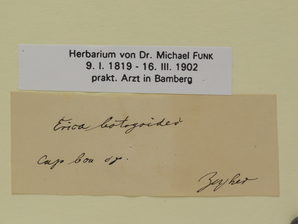 Herbarium von Dr. Michael FUNK
9. I. 1819 - 16. III. 1902
prakt. Arzt in Bamberg
Erica
Cap bon sp.
Zeyher